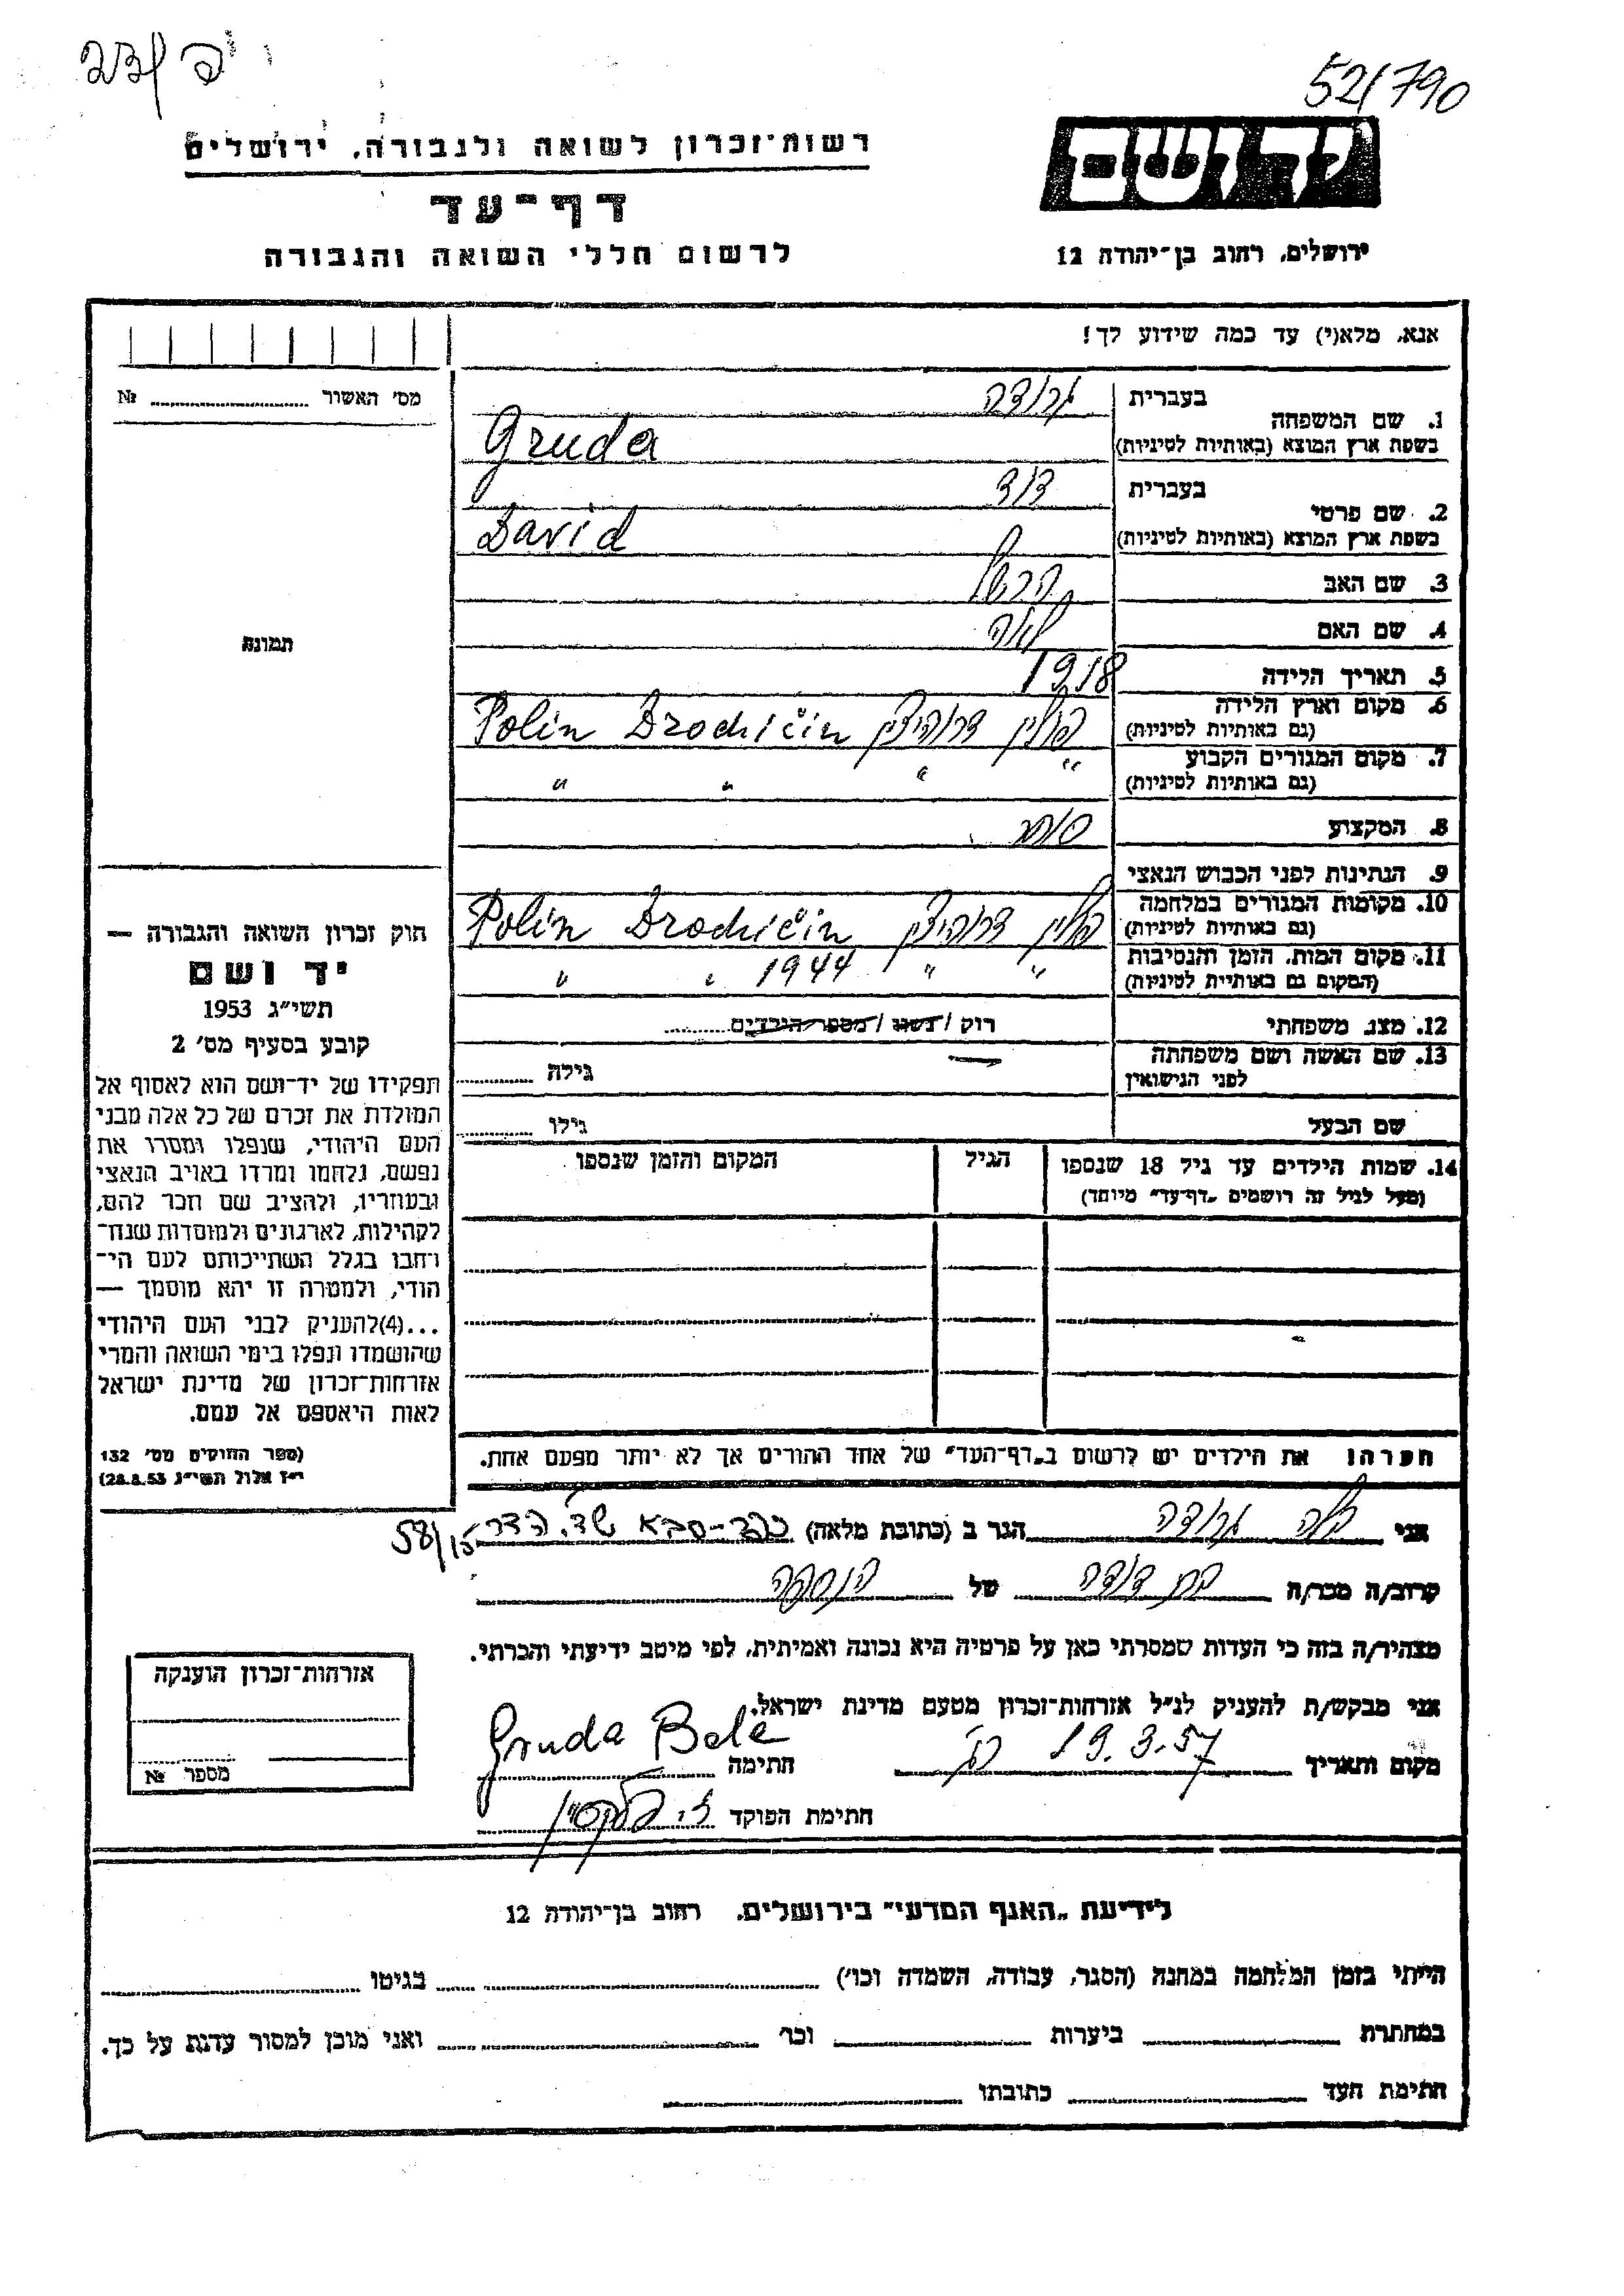 52/790
יד ושם
ירושלים, רחוב בן־יהודה 12
רשות־זכרון לשואה ולגבורה, ירושלים
דף־עד
לרשום חללי השואה והגבורה
אנא, מלא(י) עד כמה שידוע לך!
מס' האשור № ............
1. שם המשפחה
בעברית גרודה
בשפת ארץ המוצא (באותיות לטיניות) Gruda
2. שם פרטי
בעברית דוד
בשפת ארץ המוצא (באותיות לטיניות) David
3. שם האב הרשל
4. שם האם לאה
5. תאריך הלידה 1918
6. מקום וארץ הלידה
(גם באותיות לטיניות) פולין דרוהיצין Polin Drodhičin
7. מקום המגורים הקבוע
(גם באותיות לטיניות) " " " "
8. המקצוע סוחר
9. הנתינות לפני הכבוש הנאצי
10. מקומות המגורים במלחמה
(גם באותיות לטיניות) פולין דרוהיצין Polin Drodhičin
11. מקום המות, הזמן והנסיבות
(המקום גם באותיות לטיניות) " " 1944 " "
12. מצב משפחתי רוק / נשוי / מספר הילדים ............
13. שם האשה ושם משפחתה
לפני הנישואין — גילה ............
שם הבעל גילו ............
14. שמות הילדים עד גיל 18 שנספו
(מעל לגיל זה רושמים „דף־עד" מיוחד)
הגיל
המקום והזמן שנספו
הערה! את הילדים יש לרשום ב„דף־העד" של אחד ההורים אך לא יותר מפעם אחת.
תמונה
חוק זכרון השואה והגבורה —
יד ושם
תשי"ג 1953
קובע בסעיף מס' 2
תפקידו של יד־ושם הוא לאסוף אל
המולדת את זכרם של כל אלה מבני
העם היהודי, שנפלו ומסרו את
נפשם, נלחמו ומרדו באויב הנאצי
ובעוזריו, ולהציב שם וזכר להם,
לקהילות, לארגונים ולמוסדות שנח־
רבו בגלל השתייכותם לעם הי־
הודי, ולמטרה זו יהא מוסמך —
...(4)להעניק לבני העם היהודי
שהושמדו ונפלו בימי השואה והמרי
אזרחות־זכרון של מדינת ישראל
לאות היאספם אל עמם.
(ספר החוקים מס' 132
י"ז אלול תשי"ג 28.8.53)
אני בלה גרודה הגר ב (כתובת מלאה) כפר-סבא שד. הדר 58/15
קרוב/ה מכר/ה בת דודה של הנספה
מצהיר/ה בזה כי העדות שמסרתי כאן על פרטיה היא נכונה ואמיתית, לפי מיטב ידיעתי והכרתי.
אני מבקש/ת להעניק לנ"ל אזרחות־זכרון מטעם מדינת ישראל.
מקום ותאריך 19.3.57 חתימה Gruda Bela
חתימת הפוקד
אזרחות־זכרון הוענקה
מספר №
לידיעת „האגף המדעי" בירושלים, רחוב בן־יהודה 12
הייתי בזמן המלחמה במחנה (הסגר, עבודה, השמדה וכו') ............ בגיטו ............
במחתרת ............ ביערות ............ וכו' ............ ואני מוכן למסור עדות על כך.
חתימת העד ............ כתובתו ............